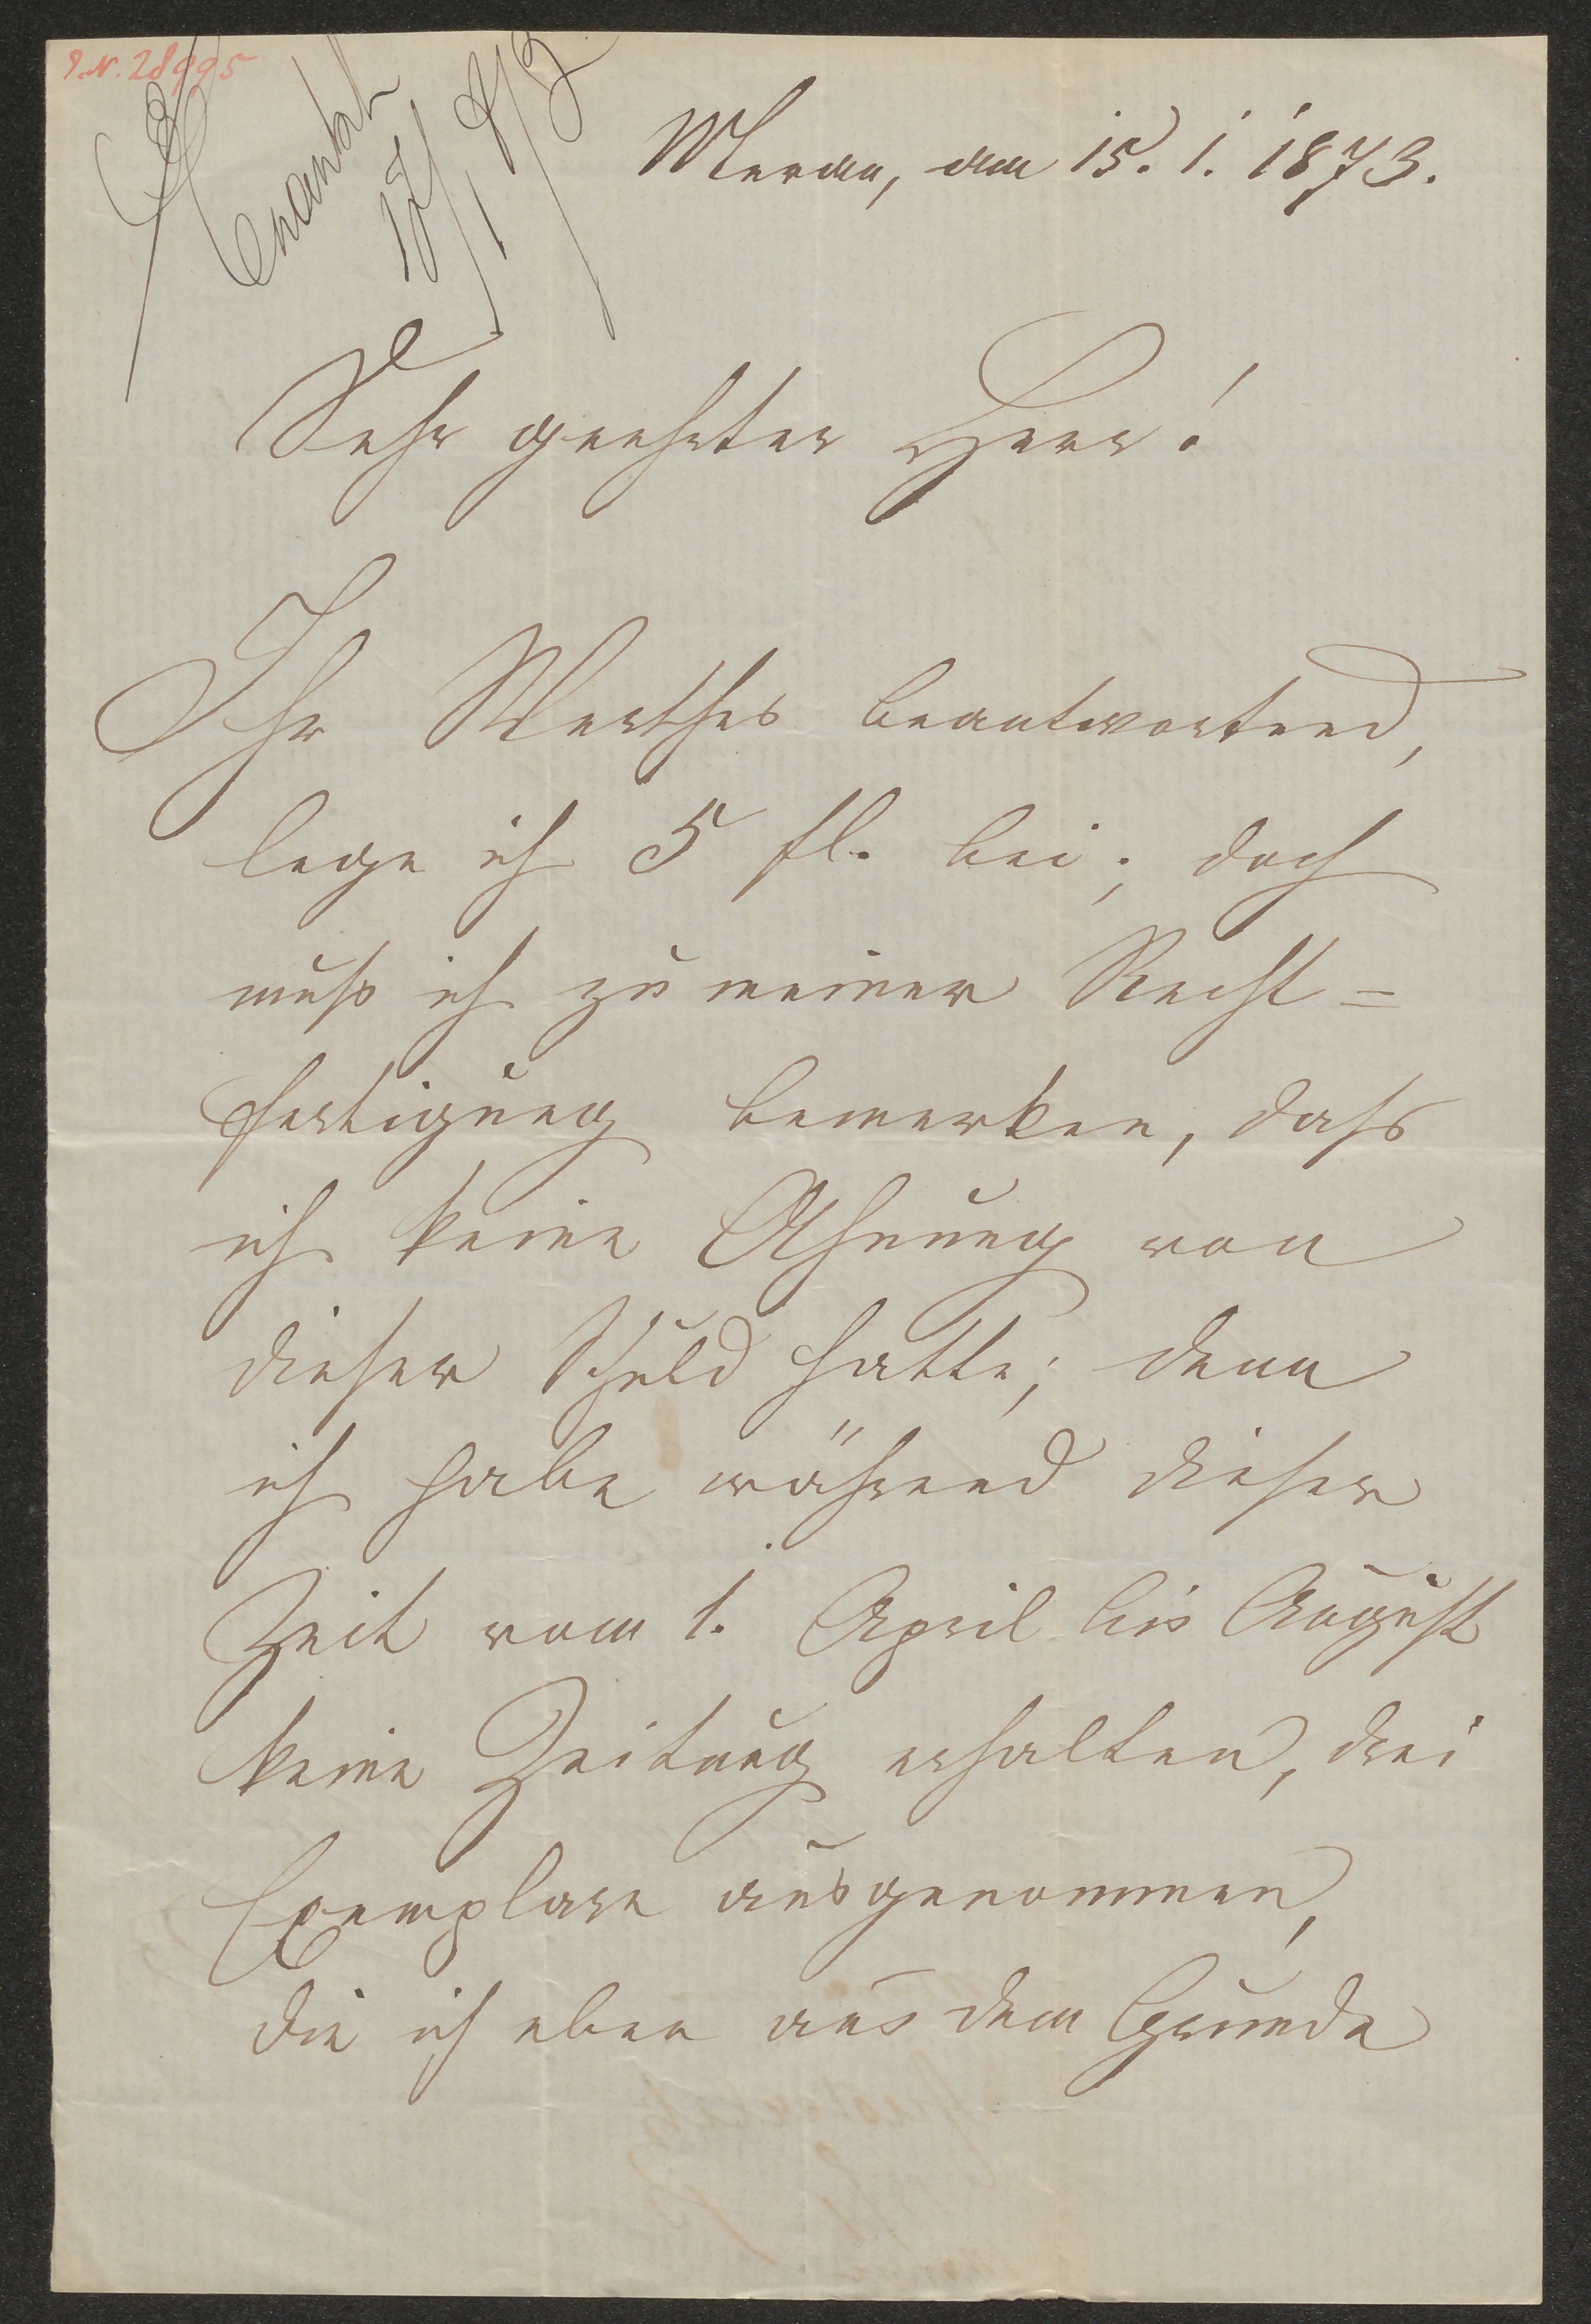 I.N. 28995
18/1 873
Meran, am 15. 1. 1873.
Sehr geehrter Herr!
Ihr Werthes beantwortend,
lege ich 5 fl. bei; doch
muß ich zu meiner Recht=
fertigung bemerken, daß
ich keine Ahnung von
dieser Schuld hatte; denn
ich habe während dieser
Zeit vom 1. April bis August
keine Zeitung erhalten, drei
Exemplare ausgenommen,
die ich eben aus dem Grunde